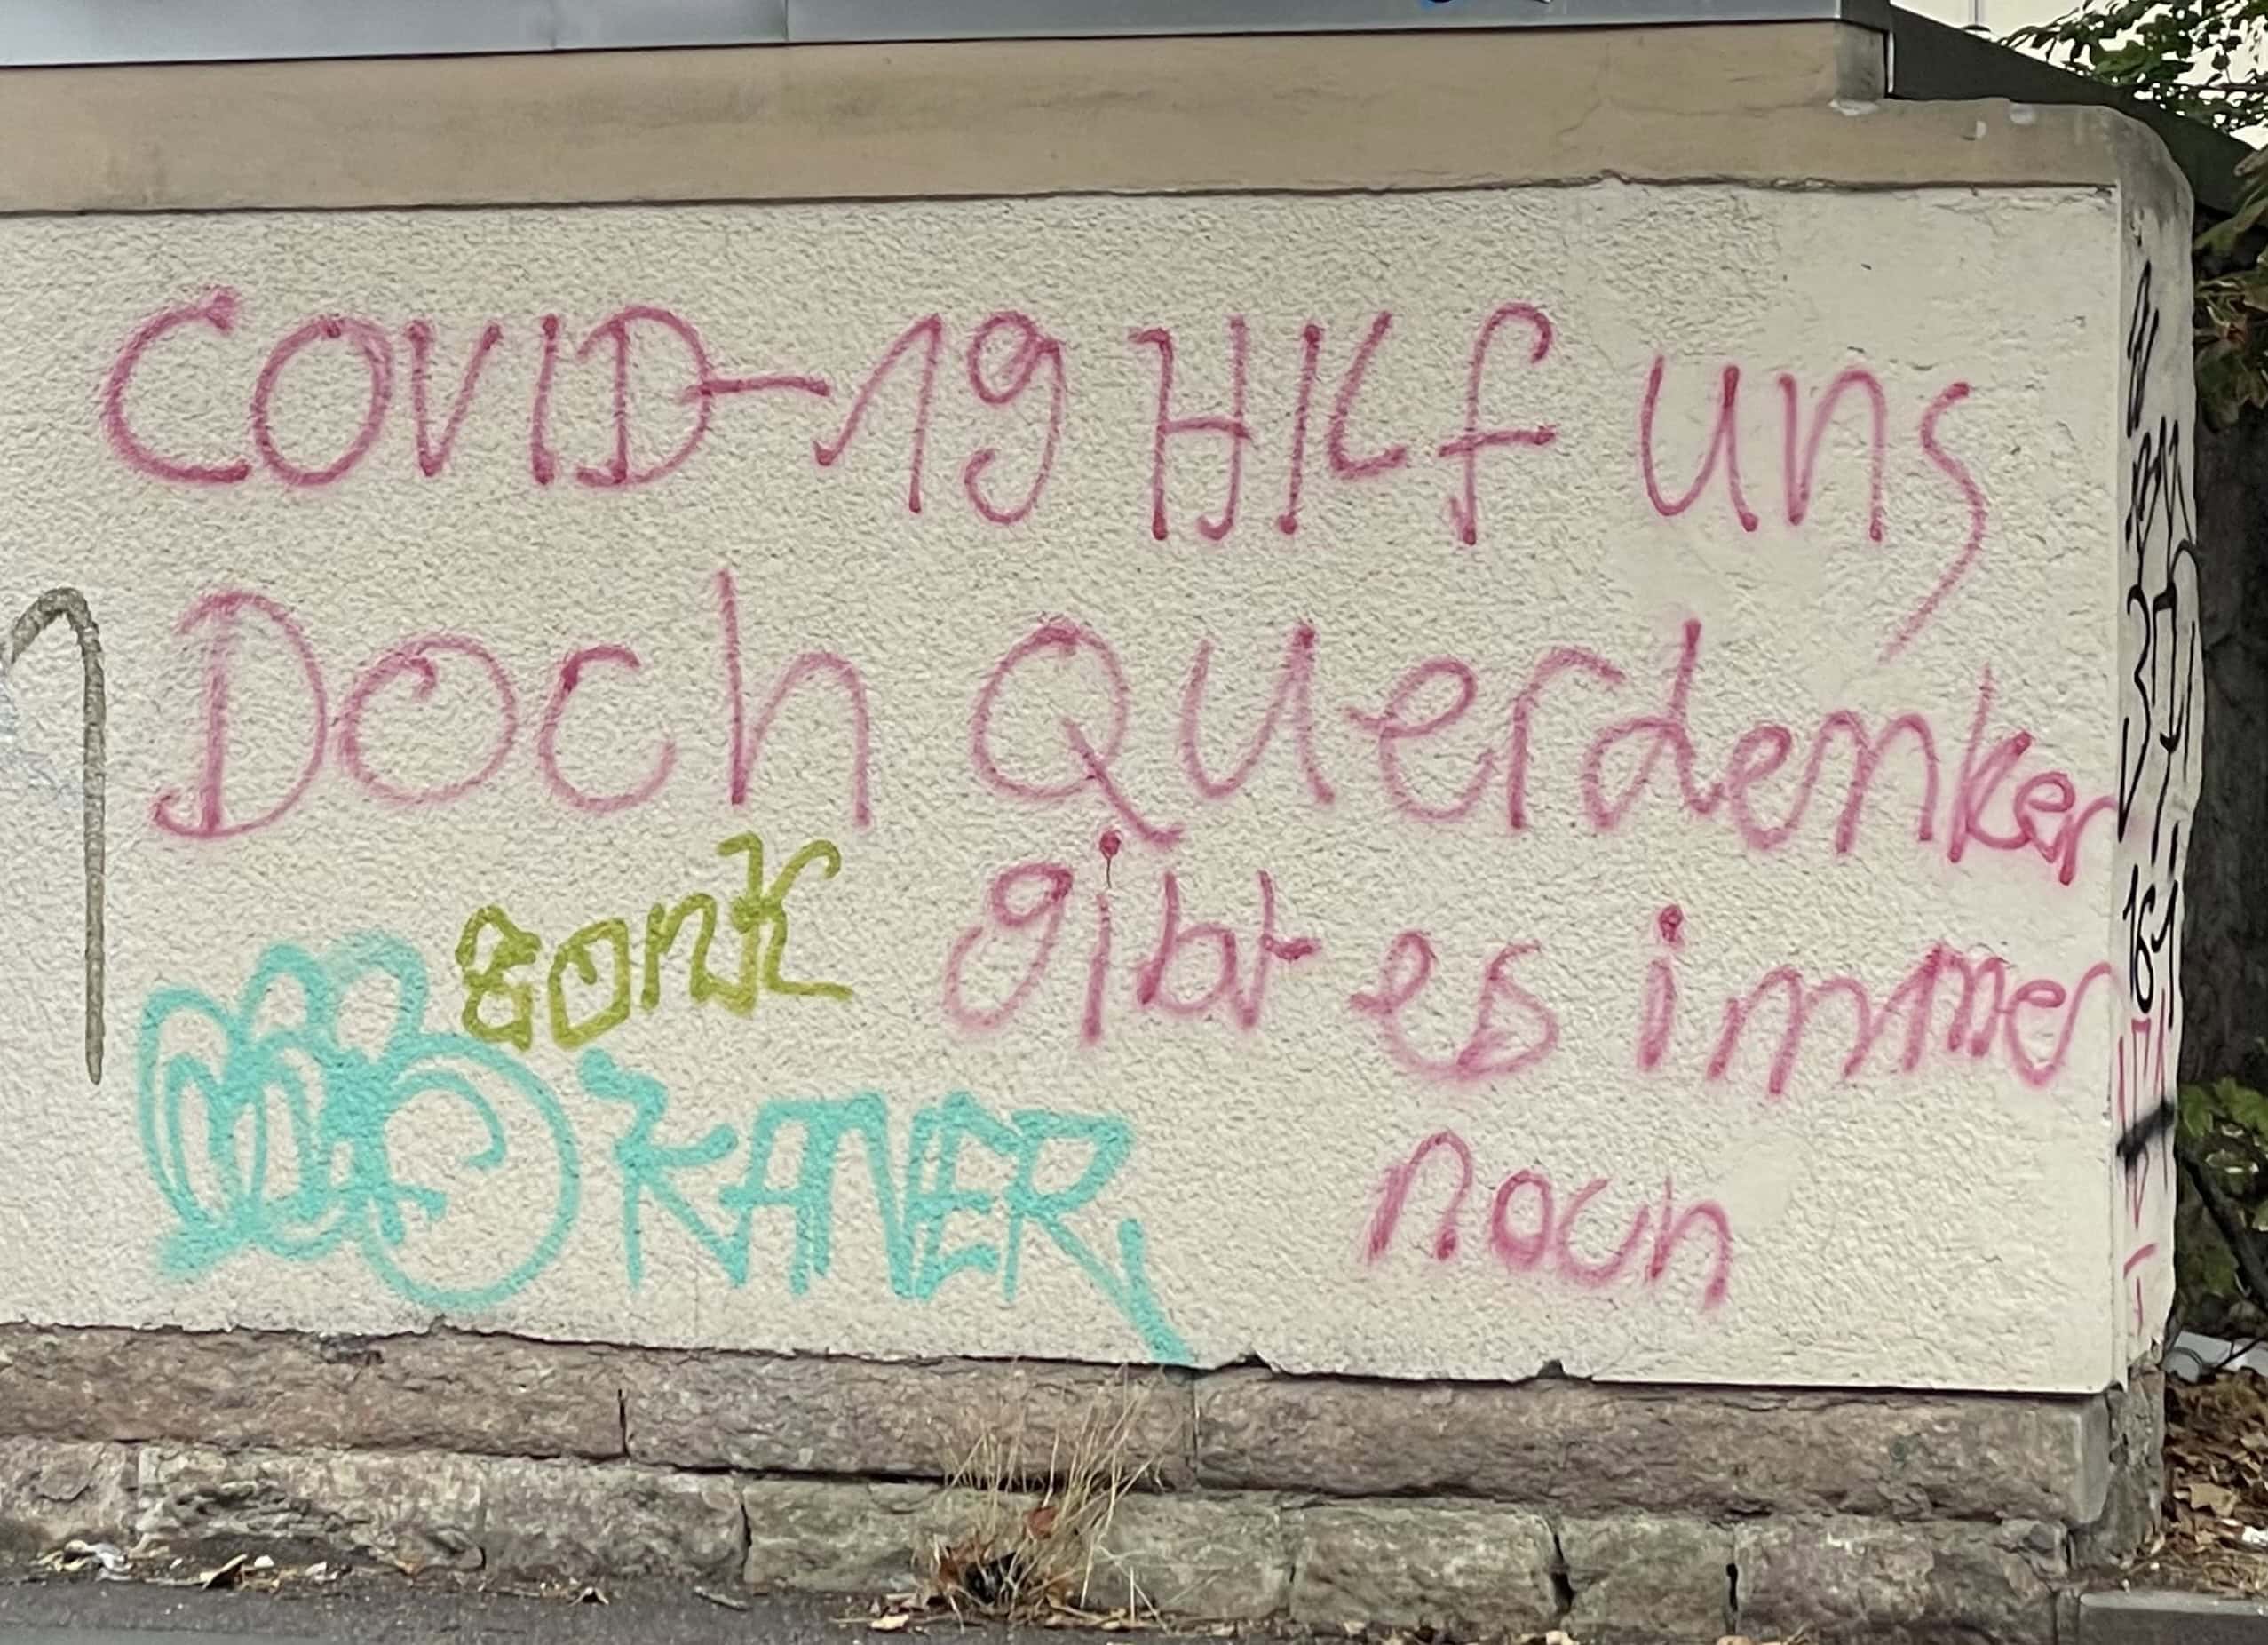 COVID-19 HILf uns
Doch Querdenker
gibt es immer
noch
BONK
KANER
161